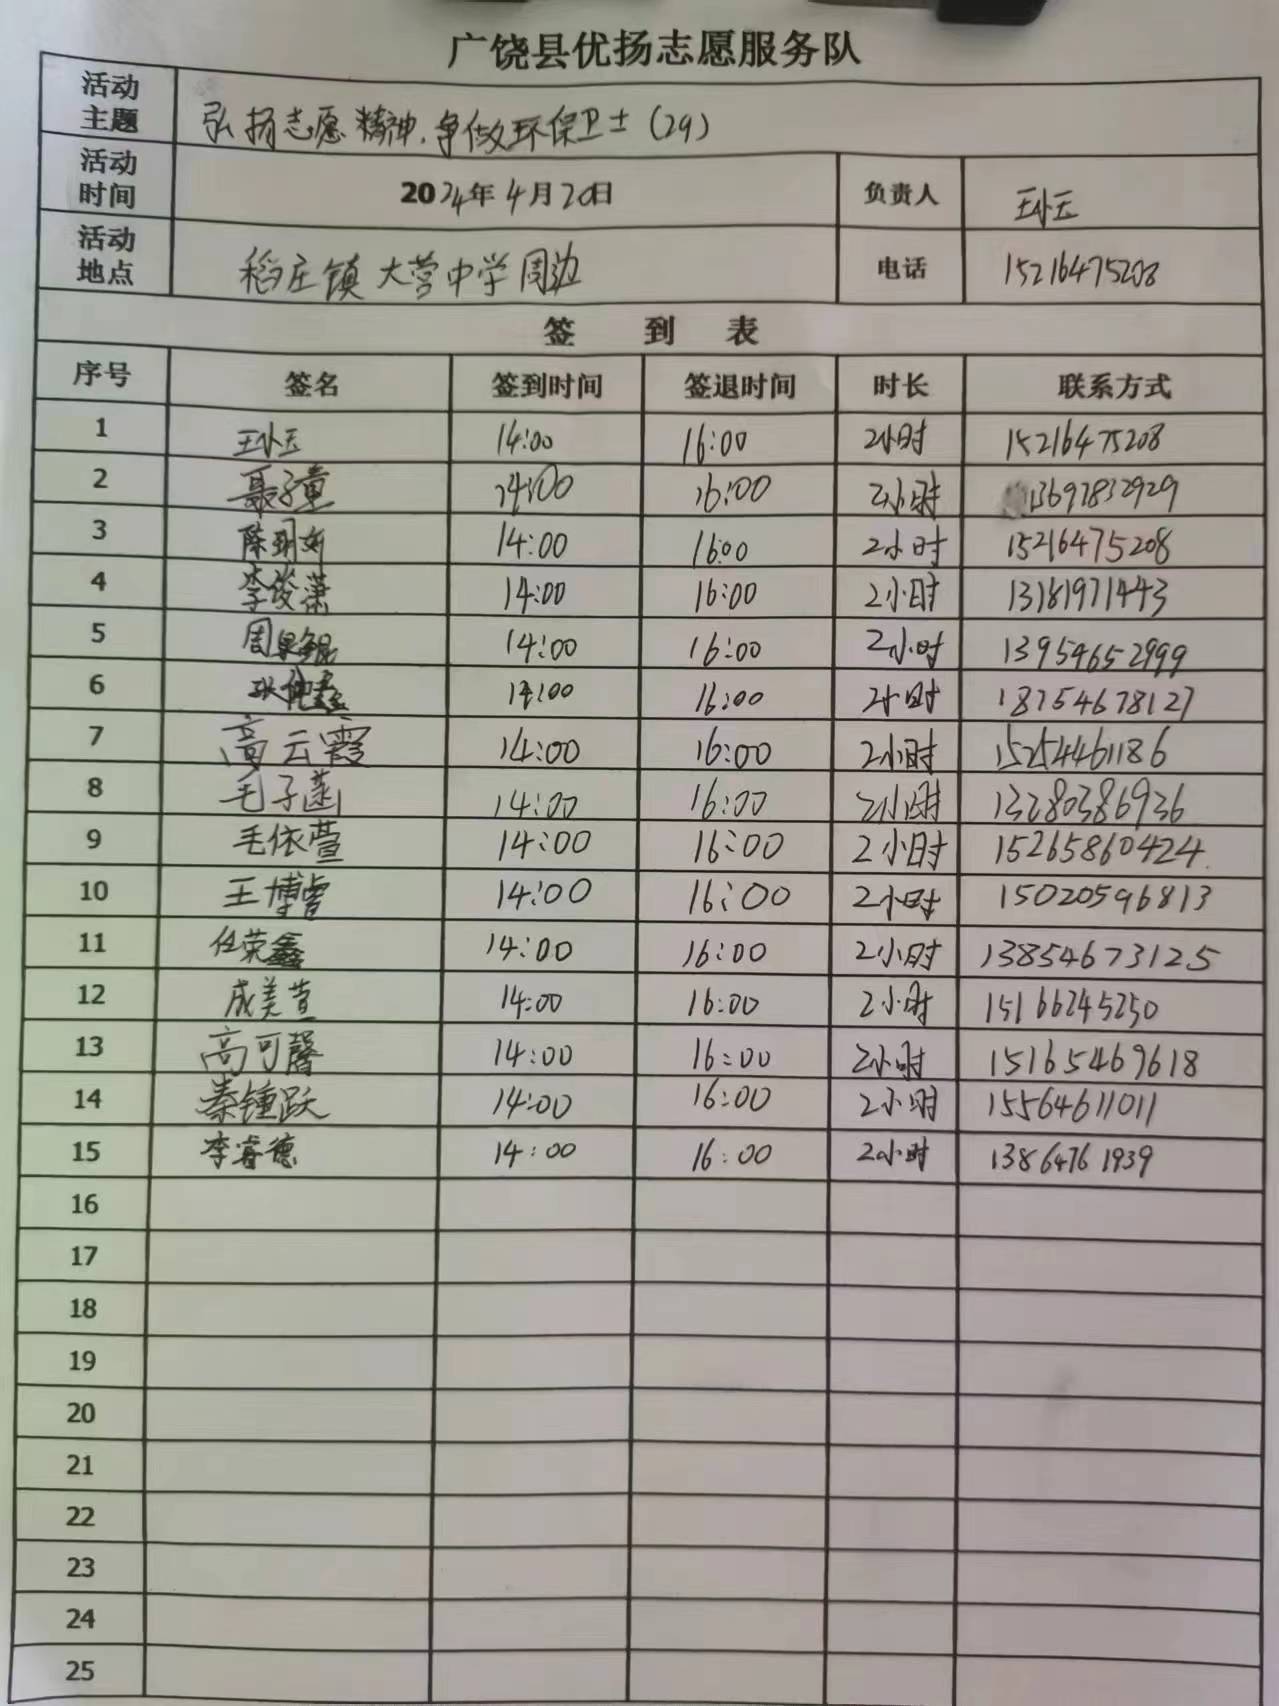 广饶县优扬志愿服务队
活动主题 弘扬志愿精神，争做环保卫士（29）
活动时间 2024年4月20日 负责人 王小玉
活动地点 稻庄镇大营中学周边 电话 15216475208
签到表
序号 签名 签到时间 签退时间 时长 联系方式
1 王小玉 14:00 16:00 2小时 15216475208
2 聂子童 14:00 16:00 2小时 13697832929
3 14:00 16:00 2小时 15216475208
4 李俊潇 14:00 16:00 2小时 13181971443
5 14:00 16:00 2小时 13954652999
6 14:00 16:00 2小时 18754678127
7 高云霞 14:00 16:00 2小时 15254461186
8 毛子菡 14:00 16:00 2小时 13280386936
9 毛依萱 14:00 16:00 2小时 15265860424
10 王博睿 14:00 16:00 2小时 15020596813
11 任荣鑫 14:00 16:00 2小时 13854673125
12 成美萱 14:00 16:00 2小时 15166245250
13 高可馨 14:00 16:00 2小时 15165469618
14 秦锺跃 14:00 16:00 2小时 15564611011
15 李睿德 14:00 16:00 2小时 13864761939
16
17
18
19
20
21
22
23
24
25